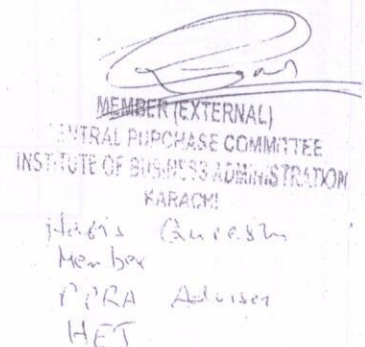 MEMBER (EXTERNAL)
CENTRAL PURCHASE COMMITTEE
INSTITUTE OF BUSINESS ADMINISTRATION
KARACHI
Qureshi
Member
PPRA Adviser
HEJ